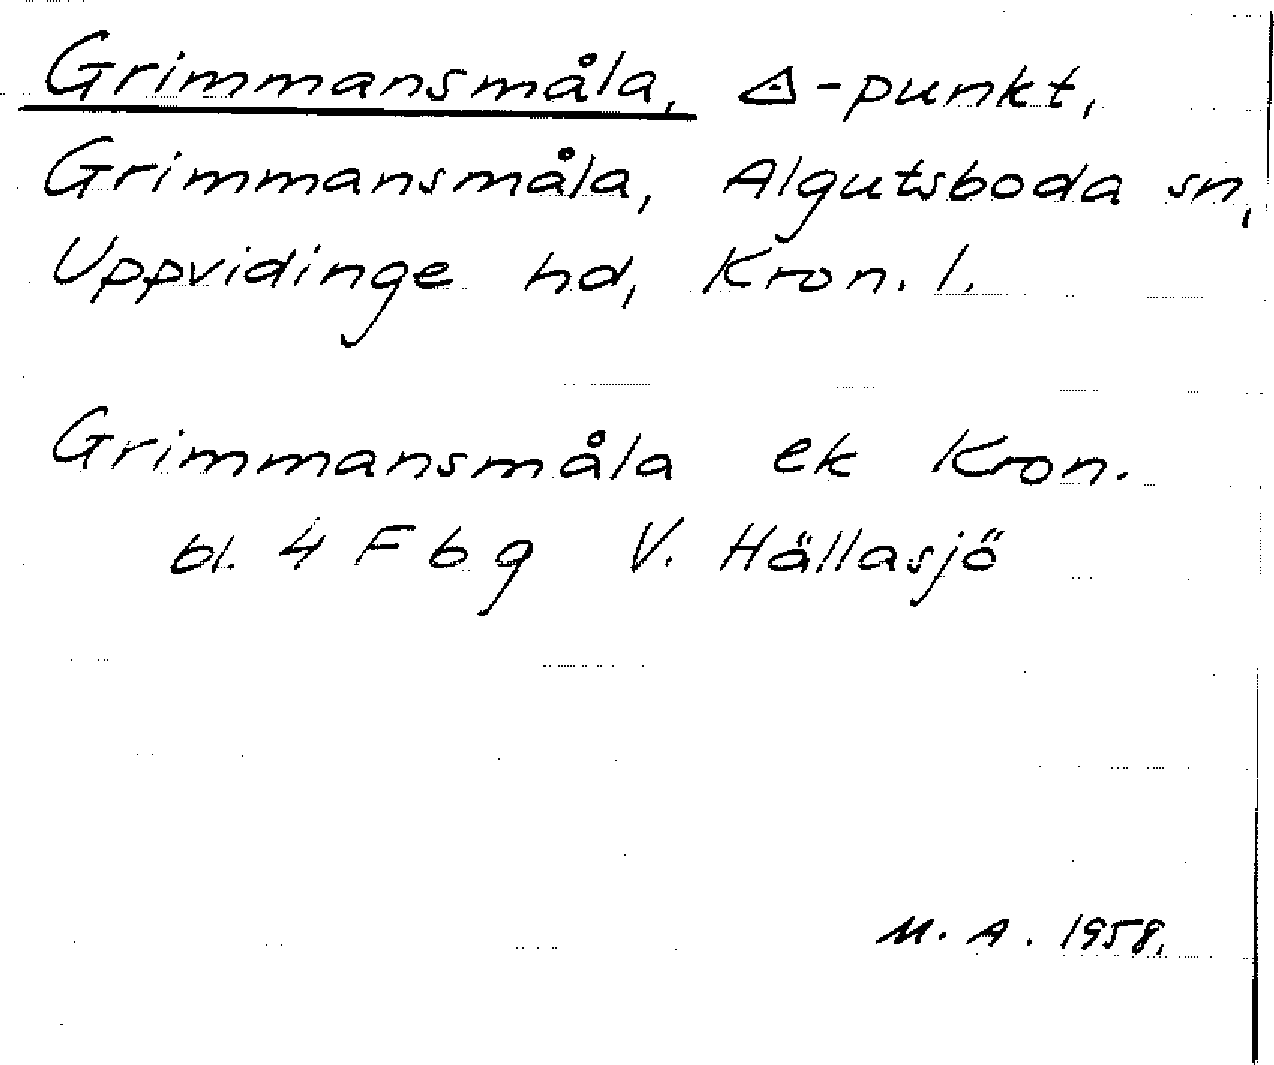 Grimmansmåla, ◬-punkt,
Grimmansmåla, Algutsboda sn,
Uppvidinge hd, Kron. l.
Grimmansmåla ek Kron.
bl. 4 F b g V. Hällasjö
M. A. 1958.